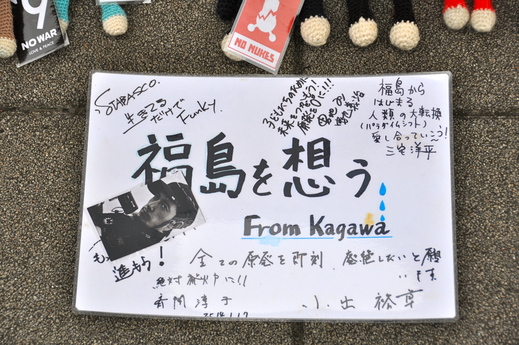 9
NO WAR
LOVE & PEACE
NO NUKES
STABASCO.
生きてる
だけで
Funky.
子どもたちのために
未来をつくろう!
福島から
はじまる
人類の大転換
(パラダイムシフト)
愛し合っていこう!
三宅洋平
福島を想う
From Kagawa
進もう!
全ての原発を即刻、廃絶したいと願
います
絶対
小出裕章